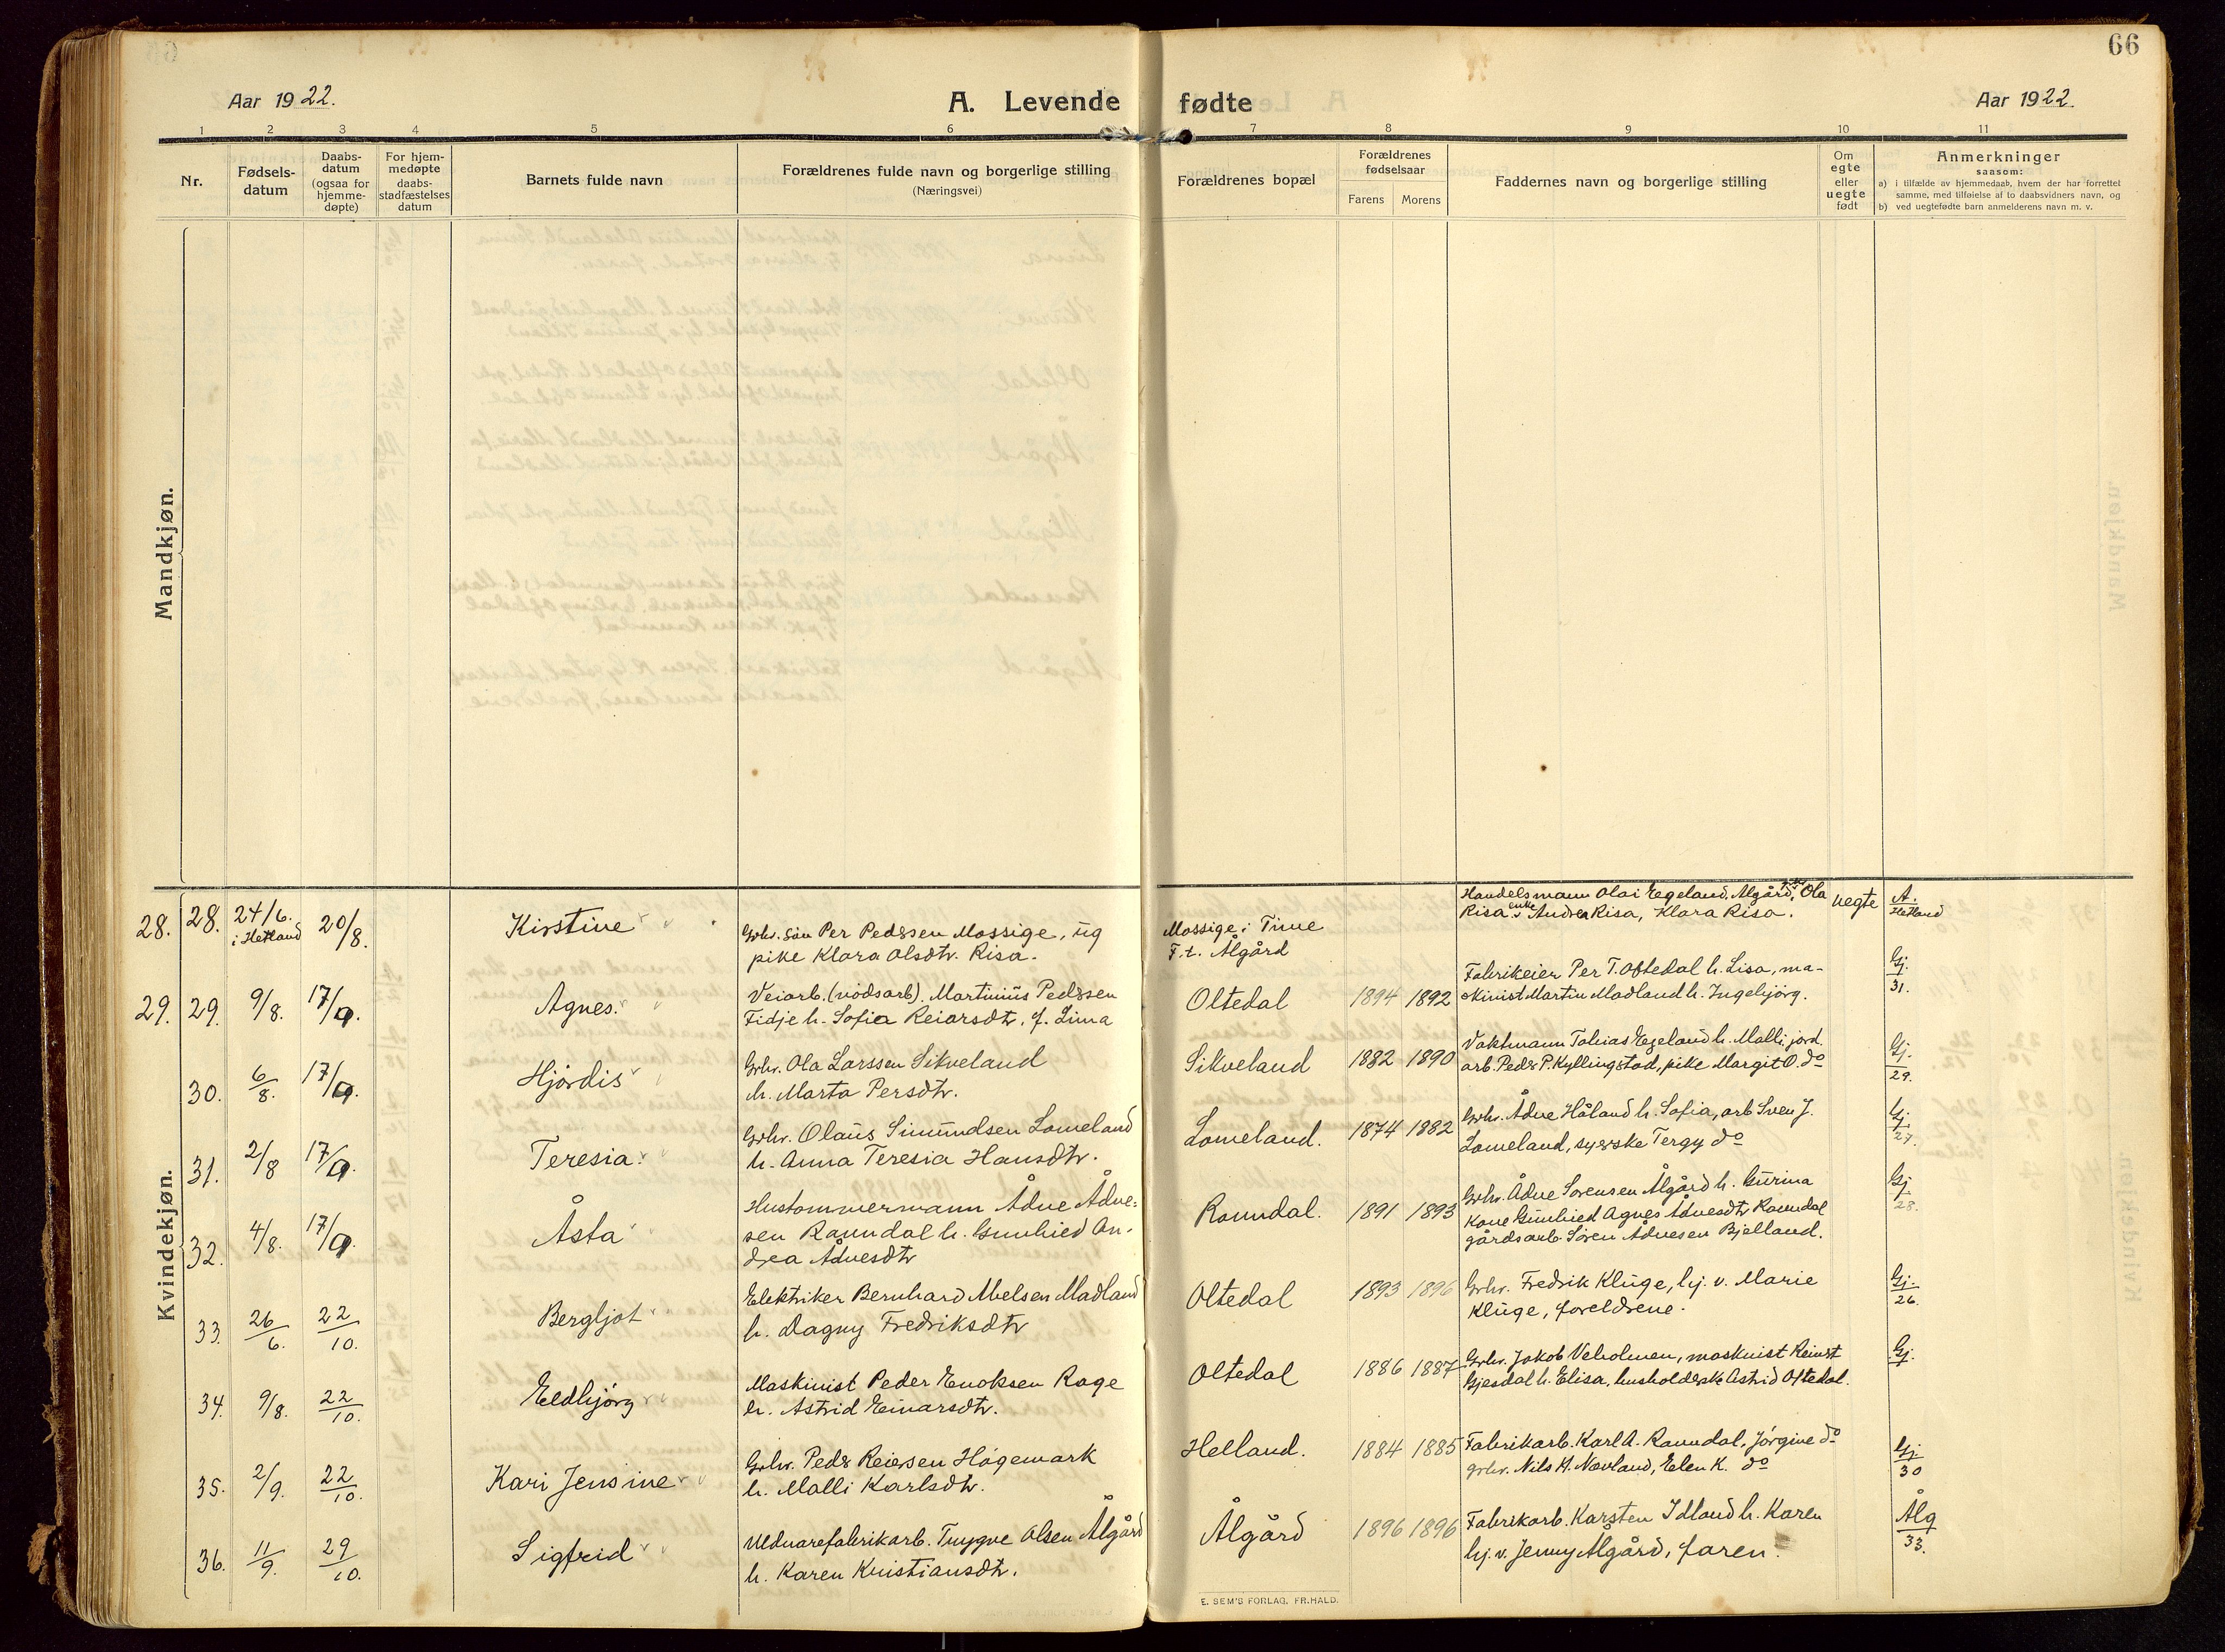 66
Aar 1922.
A. Levende fødte
Aar 1922.
1 2 3 4 5 6 7 8 9 10 11
Nr.
Fødsels-
datum
Daabs-
datum
(ogsaa for
hjemme-
døpte)
For hjem-
medøpte
daabs-
stadfæstelses
datum
Barnets fulde navn
Forældrenes fulde navn og borgerlige stilling
(Næringsvei)
Forældrenes bopæl
Forældrenes
fødselsaar
Farens Morens
Faddernes navn og borgerlige stilling
Om
egte
eller
uegte
født
Anmerkninger
saasom:
a) i tilfælde av hjemmedaab, hvem der har forrettet
samme, med tilføielse af to daabsvidners navn, og
b) ved uegtefødte barn anmelderens navn m. v.
Mandkjøn.
Kvindekjøn.
28. 28. 24/6. i Hetland 20/8. Kirstine
Grbr. søn Per Pedersen Mossige, ug
pike Klara Olsdtr. Risa.
Mossige i Time
F.t. Ålgård
Handelsmann Olai Egeland, Ålgård, Ola
Risa, enke Andrea Risa, Klara Risa.
uegte
A.
Hetland
29. 29. 9/8. 17/9. Agnes
Veiarb. (nødsarb). Martinius Pedersen
Fidje h. Sofia Reiarsdtr, f. Lima
Oltedal 1894 1892
Fabrikeier Per T. Oftedal h. Lisa, ma-
skinist Martin Madland h. Ingebjørg.
Gj.
31.
30. 6/8. 17/9. Hjördis
Grbr. Ola Larssen Sikveland
h. Marta Persdtr.
Sikveland 1882 1890
Vaktmann Tobias Egeland h. Malli, jord.
arb. Peder P. Kyllingstad, pike Margit O. do
Gj.
29.
31. 2/8 17/9. Teresia
Grbr. Olaus Simundsen Lomeland
h. Anna Teresia Hansdtr.
Lomeland. 1874 1882
Grbr. Ådne Håland h. Sofia, arb Sven J.
Lomeland, syerske Tergy do
Gj
27.
32. 4/8. 17/9. Åsta
Hustømmermann Ådne Ådne-
sen Ravndal h. Gunhied An-
drea Ådnesdtr
Ravndal. 1891 1893
Grbr. Ådne Sørensen Ålgård h. Gurina
Kone Gunhied Agnes Ådnesdtr Ravndal
gårdsarb. Søren Ådnesen Bjelland.
Gj
28.
33. 26/6. 22/10. Bergljot
Elektriker Bernhard Abelsen Madland
h. Dagny Fredriksdtr
Oltedal 1893 1896
Grbr. Fredrik Kluge, hj. v. Marie
Kluge, foreldrene.
Gj.
26.
34. 9/8. 22/10. Eldbjörg
Maskinist Peder Enoksen Rage
h. Astrid Einarsdtr.
Oltedal 1886 1887
Grbr. Jakob Veholmen, maskinist Reinert
Gjesdal h. Elisa, husholderske Astrid Oftedal.
Gj.
35. 2/9. 22/10. Kari Jensine
Grbr. Peder Reiersen Högemark
h. Malli Karlsdtr.
Helland. 1884 1885
Fabrikarb. Karl A. Ravndal, Jörgine do
grbr. Nils H. Nævland, Elen K. do
Gj
30
36. 11/9. 29/10. Sigfrid
Uldvarefabrikarb. Trygve Olsen Ålgård
h. Karen Kristiansdtr.
Ålgård 1896 1896
Fabrikarb. Karsten Idland h. Karen
hj. v. Jenny Ålgård, faren.
Ålg
33.
E. SEM'S FORLAG, FR.HALD.